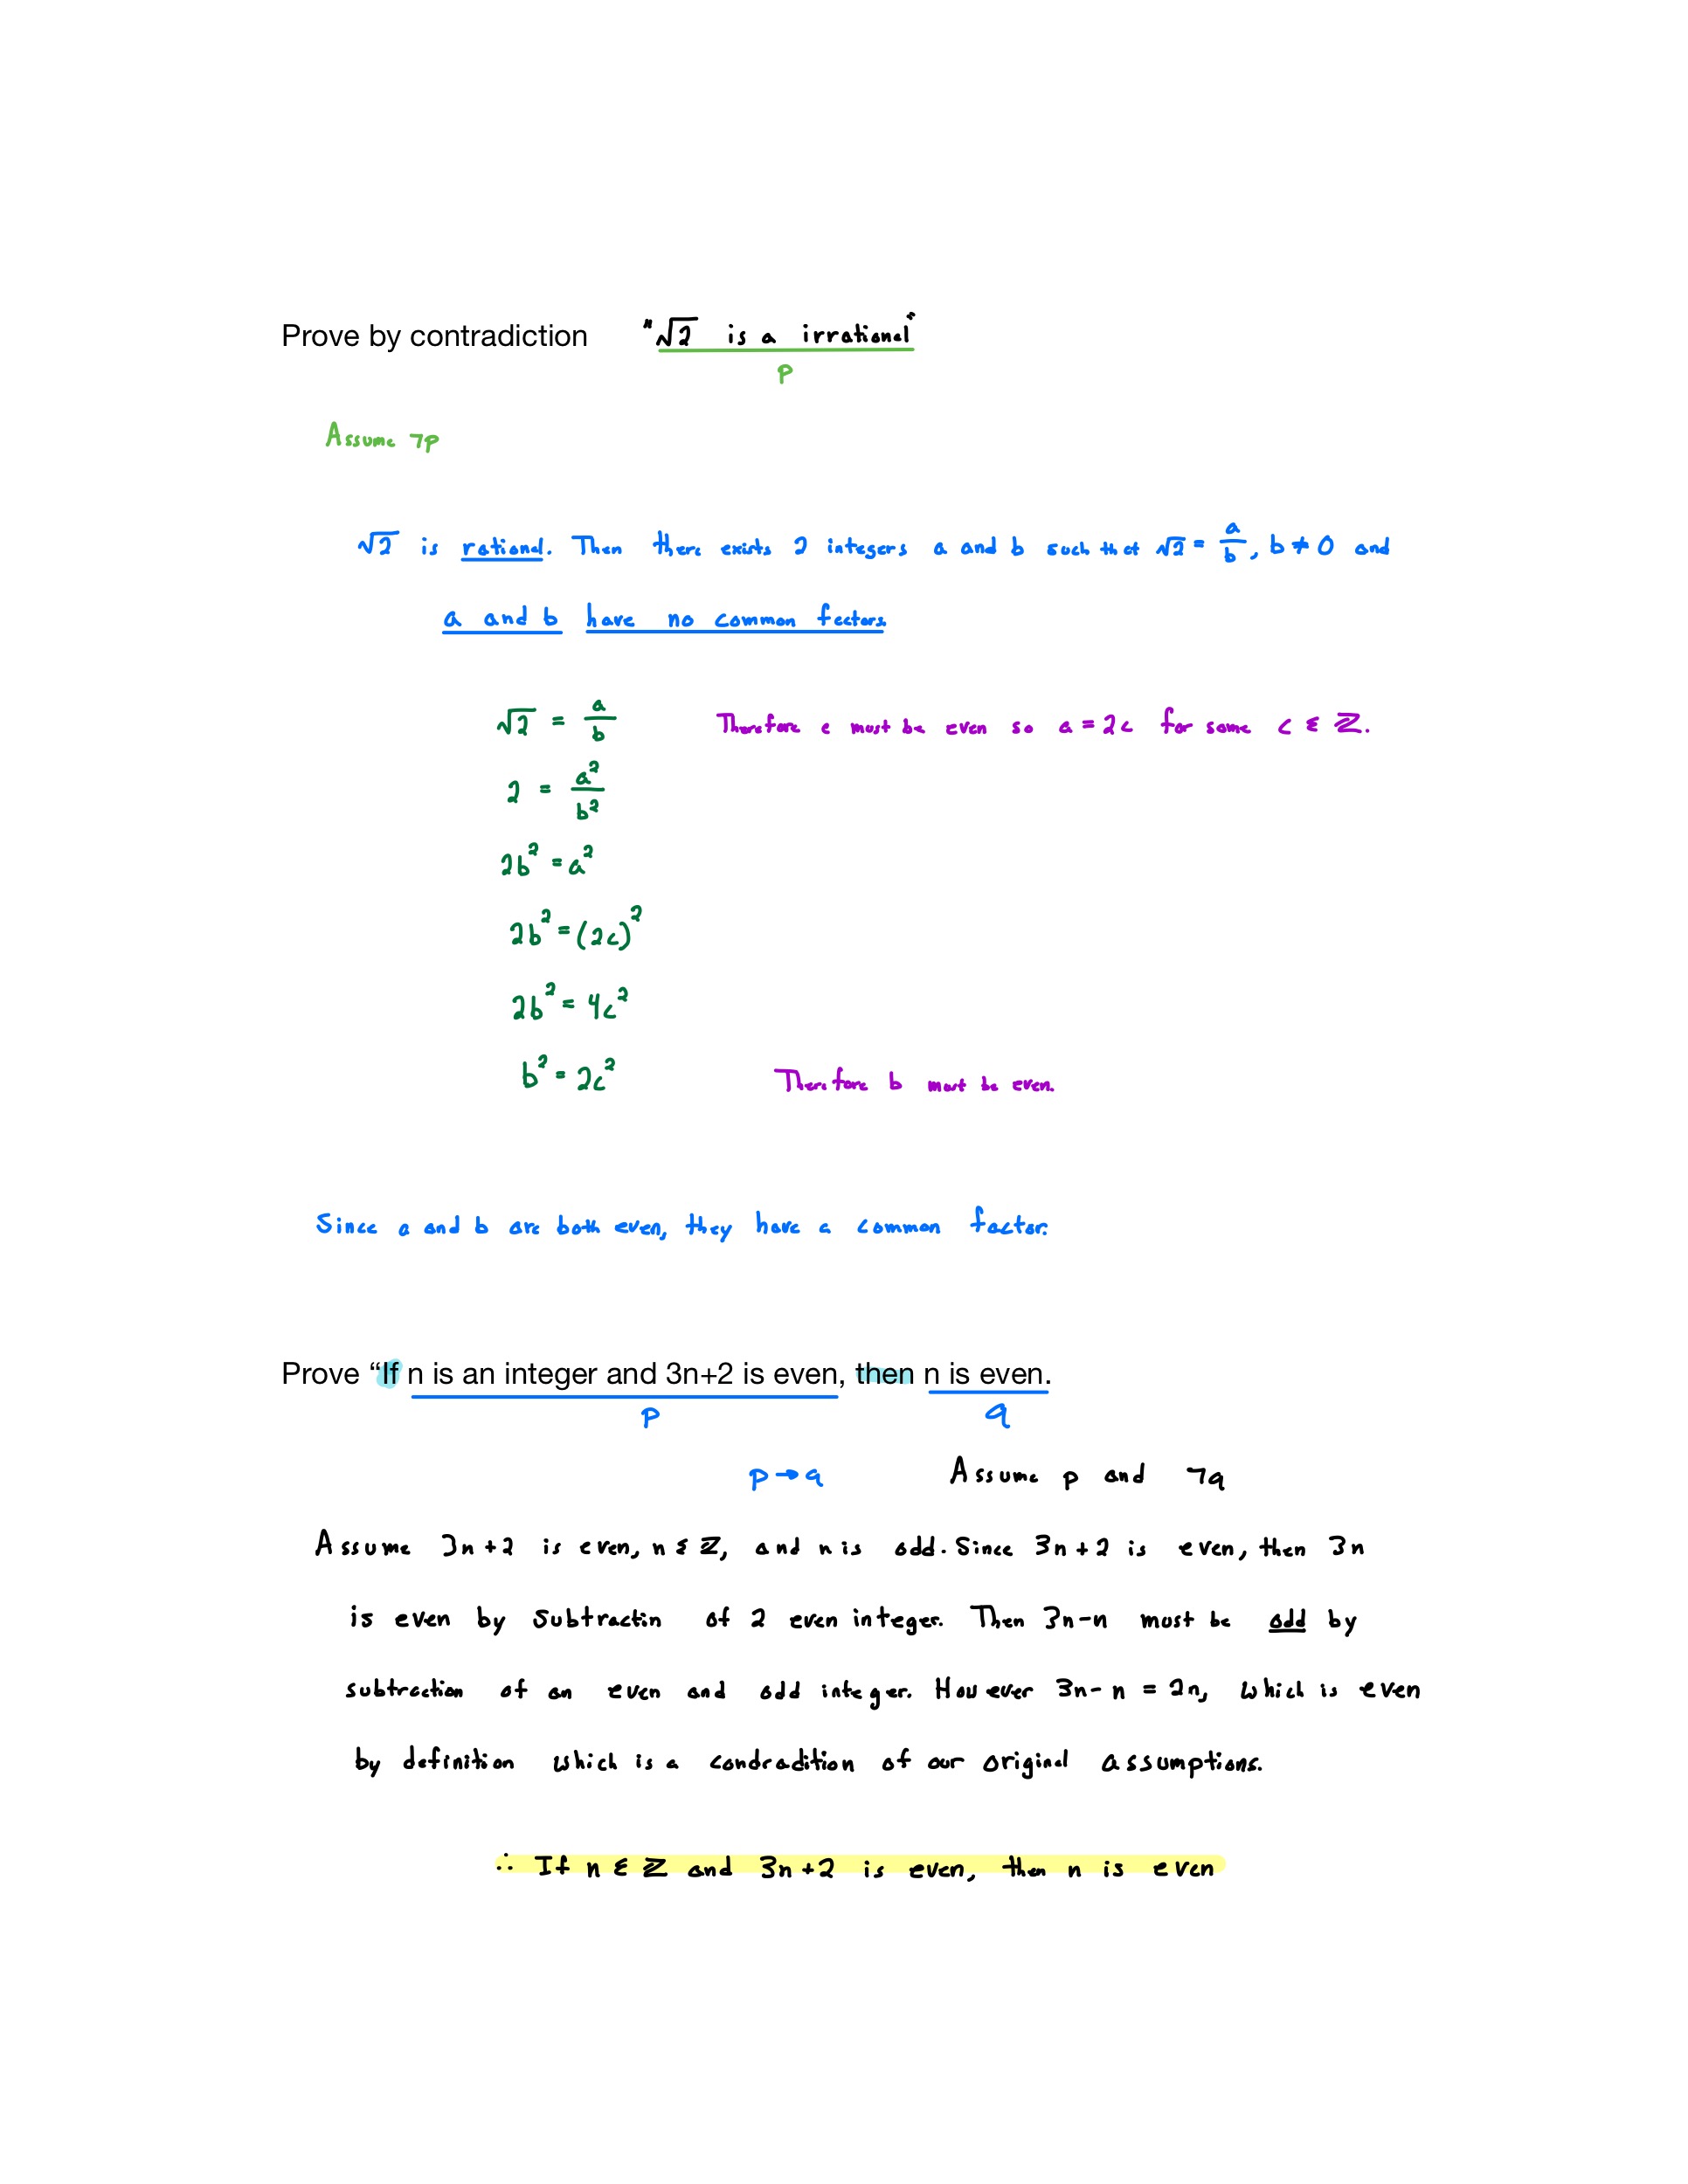 Prove by contradiction "√2 is a irrational"
p
Assume ¬p
√2 is rational. Then there exists 2 integers a and b such that √2 = a/b, b ≠ 0 and
a and b have no common factors.
√2 = a/b Therefore a must be even so a = 2c for some c ∈ ℤ.
2 = a²/b²
2b² = a²
2b² = (2c)²
2b² = 4c²
b² = 2c² Therefore b must be even.
Since a and b are both even, they have a common factor.
Prove “If n is an integer and 3n+2 is even, then n is even.
p q
p → q Assume p and ¬q
Assume 3n+2 is even, n ∈ ℤ, and n is odd. Since 3n+2 is even, then 3n
is even by subtractin of 2 even integer. Then 3n-n must be odd by
subtraction of an even and odd integer. However 3n-n = 2n, which is even
by definition which is a condradition of our original assumptions.
∴ If n ∈ ℤ and 3n+2 is even, then n is even